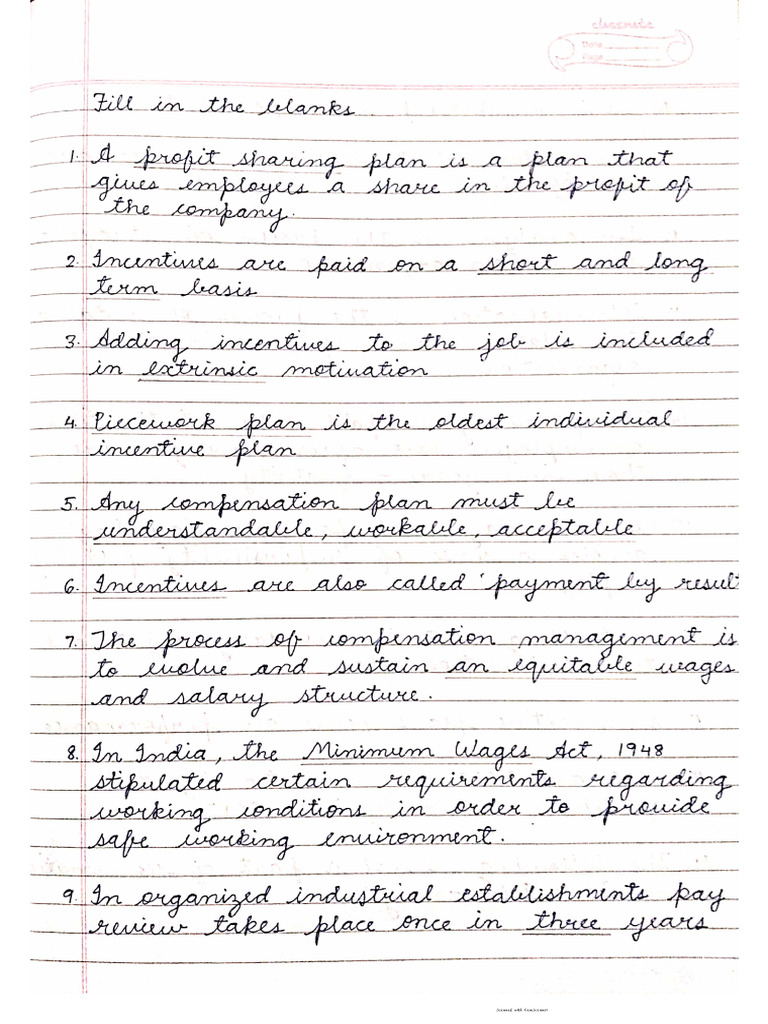 classmate
Date
Page
Fill in the blanks
1. A profit sharing plan is a plan that
gives employees a share in the profit of
the company.
2. Incentives are paid on a short and long
term basis
3. Adding incentives to the job is included
in extrinsic motivation
4. Piecework plan is the oldest individual
incentive plan
5. Any compensation plan must be
understandable, workable, acceptable
6. Incentives are also called 'payment by result
7. The process of compensation management is
to evolve and sustain an equitable wages
and salary structure.
8. In India, the Minimum Wages Act, 1948
stipulated certain requirements regarding
working conditions in order to provide
safe working environment.
9. In organized industrial establishments pay
review takes place once in three years
Scanned with CamScanner